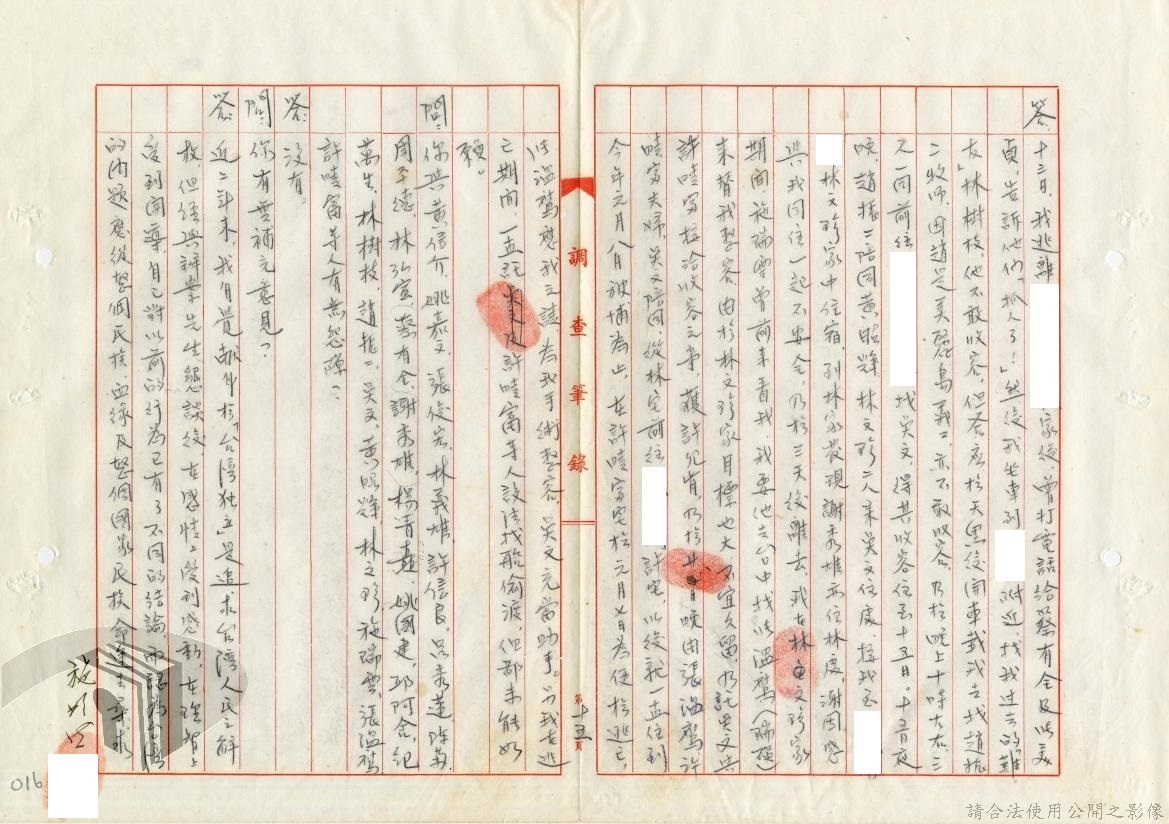 答:十三日,我逃離
家後,曾打電話給蔡有全及林美
貞,告訴他們「抓人了!」然後我坐車到
附近,找我過去的「難
友」林樹枝,他不敢收容,但答應於天黑後開車載我去找趙振
二牧師,因趙是美麗島義工,亦不敢收容,乃於晚上十時左右三
人一同前往
找吳文,得其收容住至十五日。十五日夜
晚趙振二陪同黃昭輝、林文珍二人來吳文住處,接我至
林文珍家中住宿,到林家發現謝秀雄亦住林處,謝因感
與我同住一起不安全,乃於三天後離去,我在林文珍家
期間施瑞雲曾前來看我,我要他去台中找張溫鷹(瑞雲
來替我整容,由於林文珍家目標也大,不宜久留,乃託吳文與
許晴富接洽收容之事,獲許允肯,乃於廿 日晚由張溫鷹、許
晴富夫婦、吳文陪同,從林宅前往
許宅,以後就一直住到
今年元月八日被捕為止,在許晴富宅於元月 日為便於逃亡,
張溫鷹應我之請為我手術整容,吳文充當助手。另我在逃
亡期間,一直託 許晴富等人設法找船偷渡,但都未能如
願。
問:你與黃信介、姚嘉文、張俊宏、林義雄、許信良、呂秀蓮、陳菊、
周平德、林弘宣、蔡有全、謝秀雄、楊青矗、姚國建、邱阿舍、紀
萬生、林樹枝、趙振二、吳文、黃昭輝、林文珍、施瑞雲、張溫鷹、
許晴富等人有無怨隙?
答:沒有。
問:你有無補充意見?
答:近二年來,我自覺獻身於「台灣獨立」是追求台灣人民之解
放,但經與辦案先生懇談後,在感情上受到感動,在理智上
受到開導,自己對以前的行為已有了不同的結論,而認為台灣
的問題應從整個民族、血緣及整個國家民族命運去尋求
施明正
調查筆錄
第十五頁
016
請合法使用公開之影像